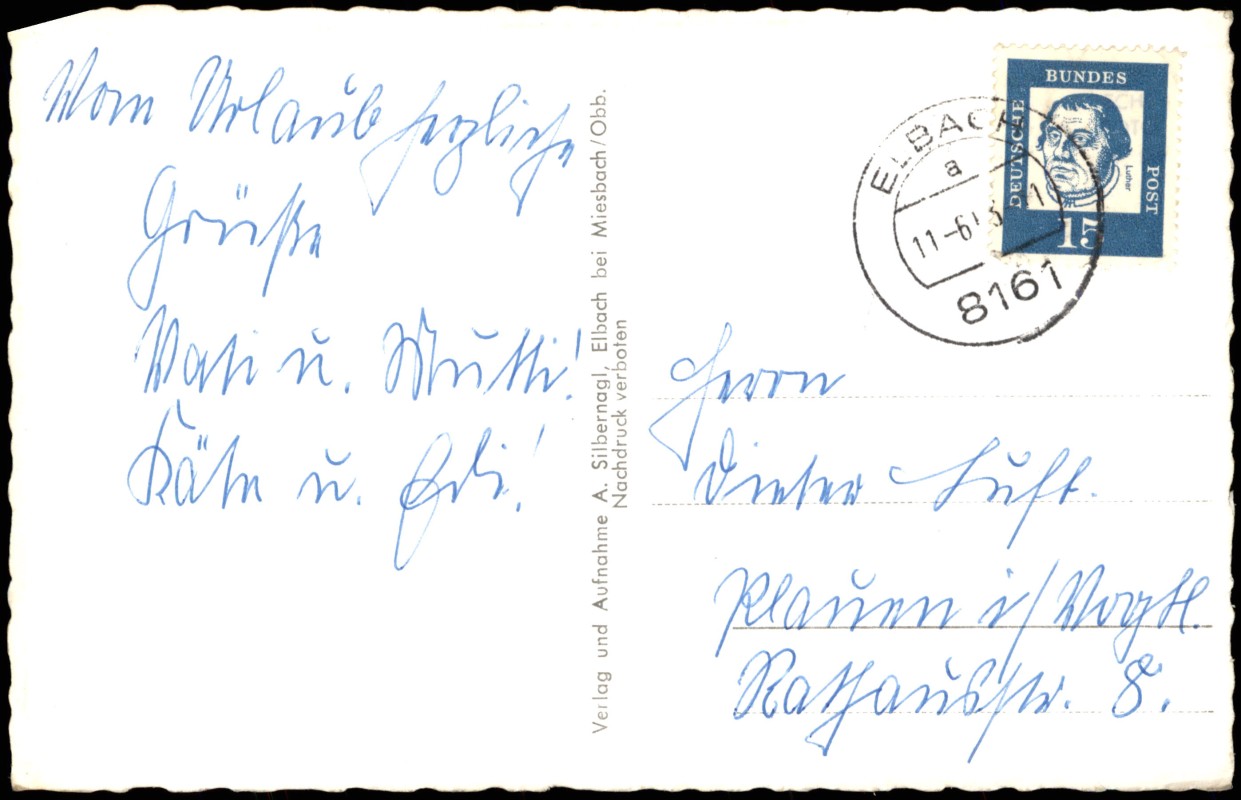 Vom Urlaub herzliche
Grüße
Vati u. Mutti!
Käte u. Edi!
Verlag und Aufnahme A. Silbernagl, Elbach bei Miesbach/Obb.
Nachdruck verboten
DEUTSCHE
BUNDES
POST
Luther
15
ELBACH
a
11-6
8161
Herrn
Dieter Luft.
Plauen i/Vogtl.
Rathausstr. 8.